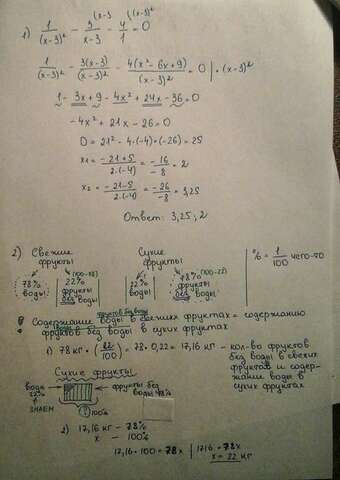 (x-3 (x-3)²
1) 1/(x-3)² - 3/(x-3) - 4/1 = 0
1/(x-3)² - 3(x-3)/(x-3)² - 4(x²-6x+9)/(x-3)² = 0 | · (x-3)²
1 - 3x + 9 - 4x² + 24x - 36 = 0
-4x² + 21x - 26 = 0
D = 21² - 4·(-4)·(-26) = 25
x₁ = -21+5/2·(-4) = -16/-8 = 2
x₂ = -21-5/2·(-4) = -26/-8 = 3,25
Ответ: 3,25 ; 2
2) Свежие фрукты Сухие фрукты % = 1/100 чего-то
78% воды (100-78) 22% фрукты без воды 22% воды 78% (100-22) фрукты без воды
фруктов без воды
Содержание воды в свежих фруктах = содержанию
фруктов без воды в сухих фруктах
1) 78 кг · (22/100) = 78 · 0,22 = 17,16 кг - кол-во фруктов
без воды в свежих
фруктах и содер-
жании воды в
сухих фруктах
Сухие фрукты
вода 22% фрукты без воды 78%
ЗНАЕМ 100%
2) 17,16 кг - 78%
x - 100%
17,16 · 100 = 78x | 1716 = 78x
x = 22 кг